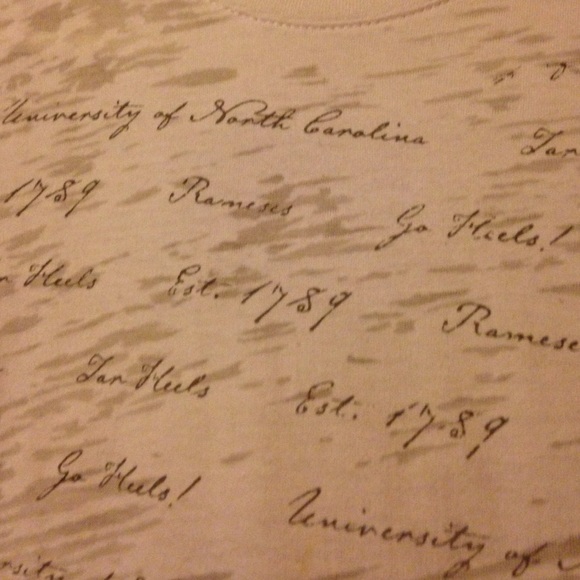 University of North Carolina
Tar
1789 Rameses Go Heels!
Heels Est. 1789 Ramese
Tar Heels Est. 1789
Go Heels! University of
rsity